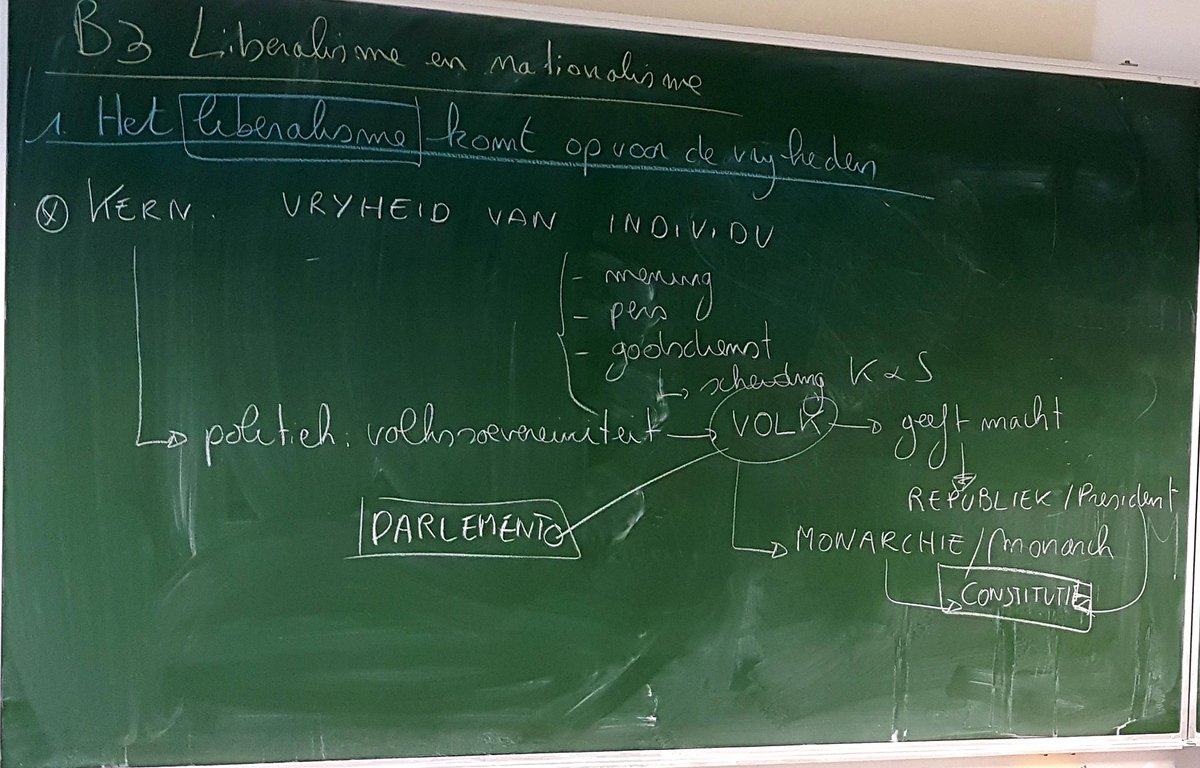 B3 Liberalisme en nationalisme
1. Het liberalisme komt op voor de vryheden
KERN. VRYHEID VAN INDIVIDU
- mening
- pers
- godsdienst
scheiding K & S
politiek. volkssoevereiniteit VOLK geeft macht
REPUBLIEK / President
PARLEMENT
MONARCHIE / Monarch
CONSTITUTIE